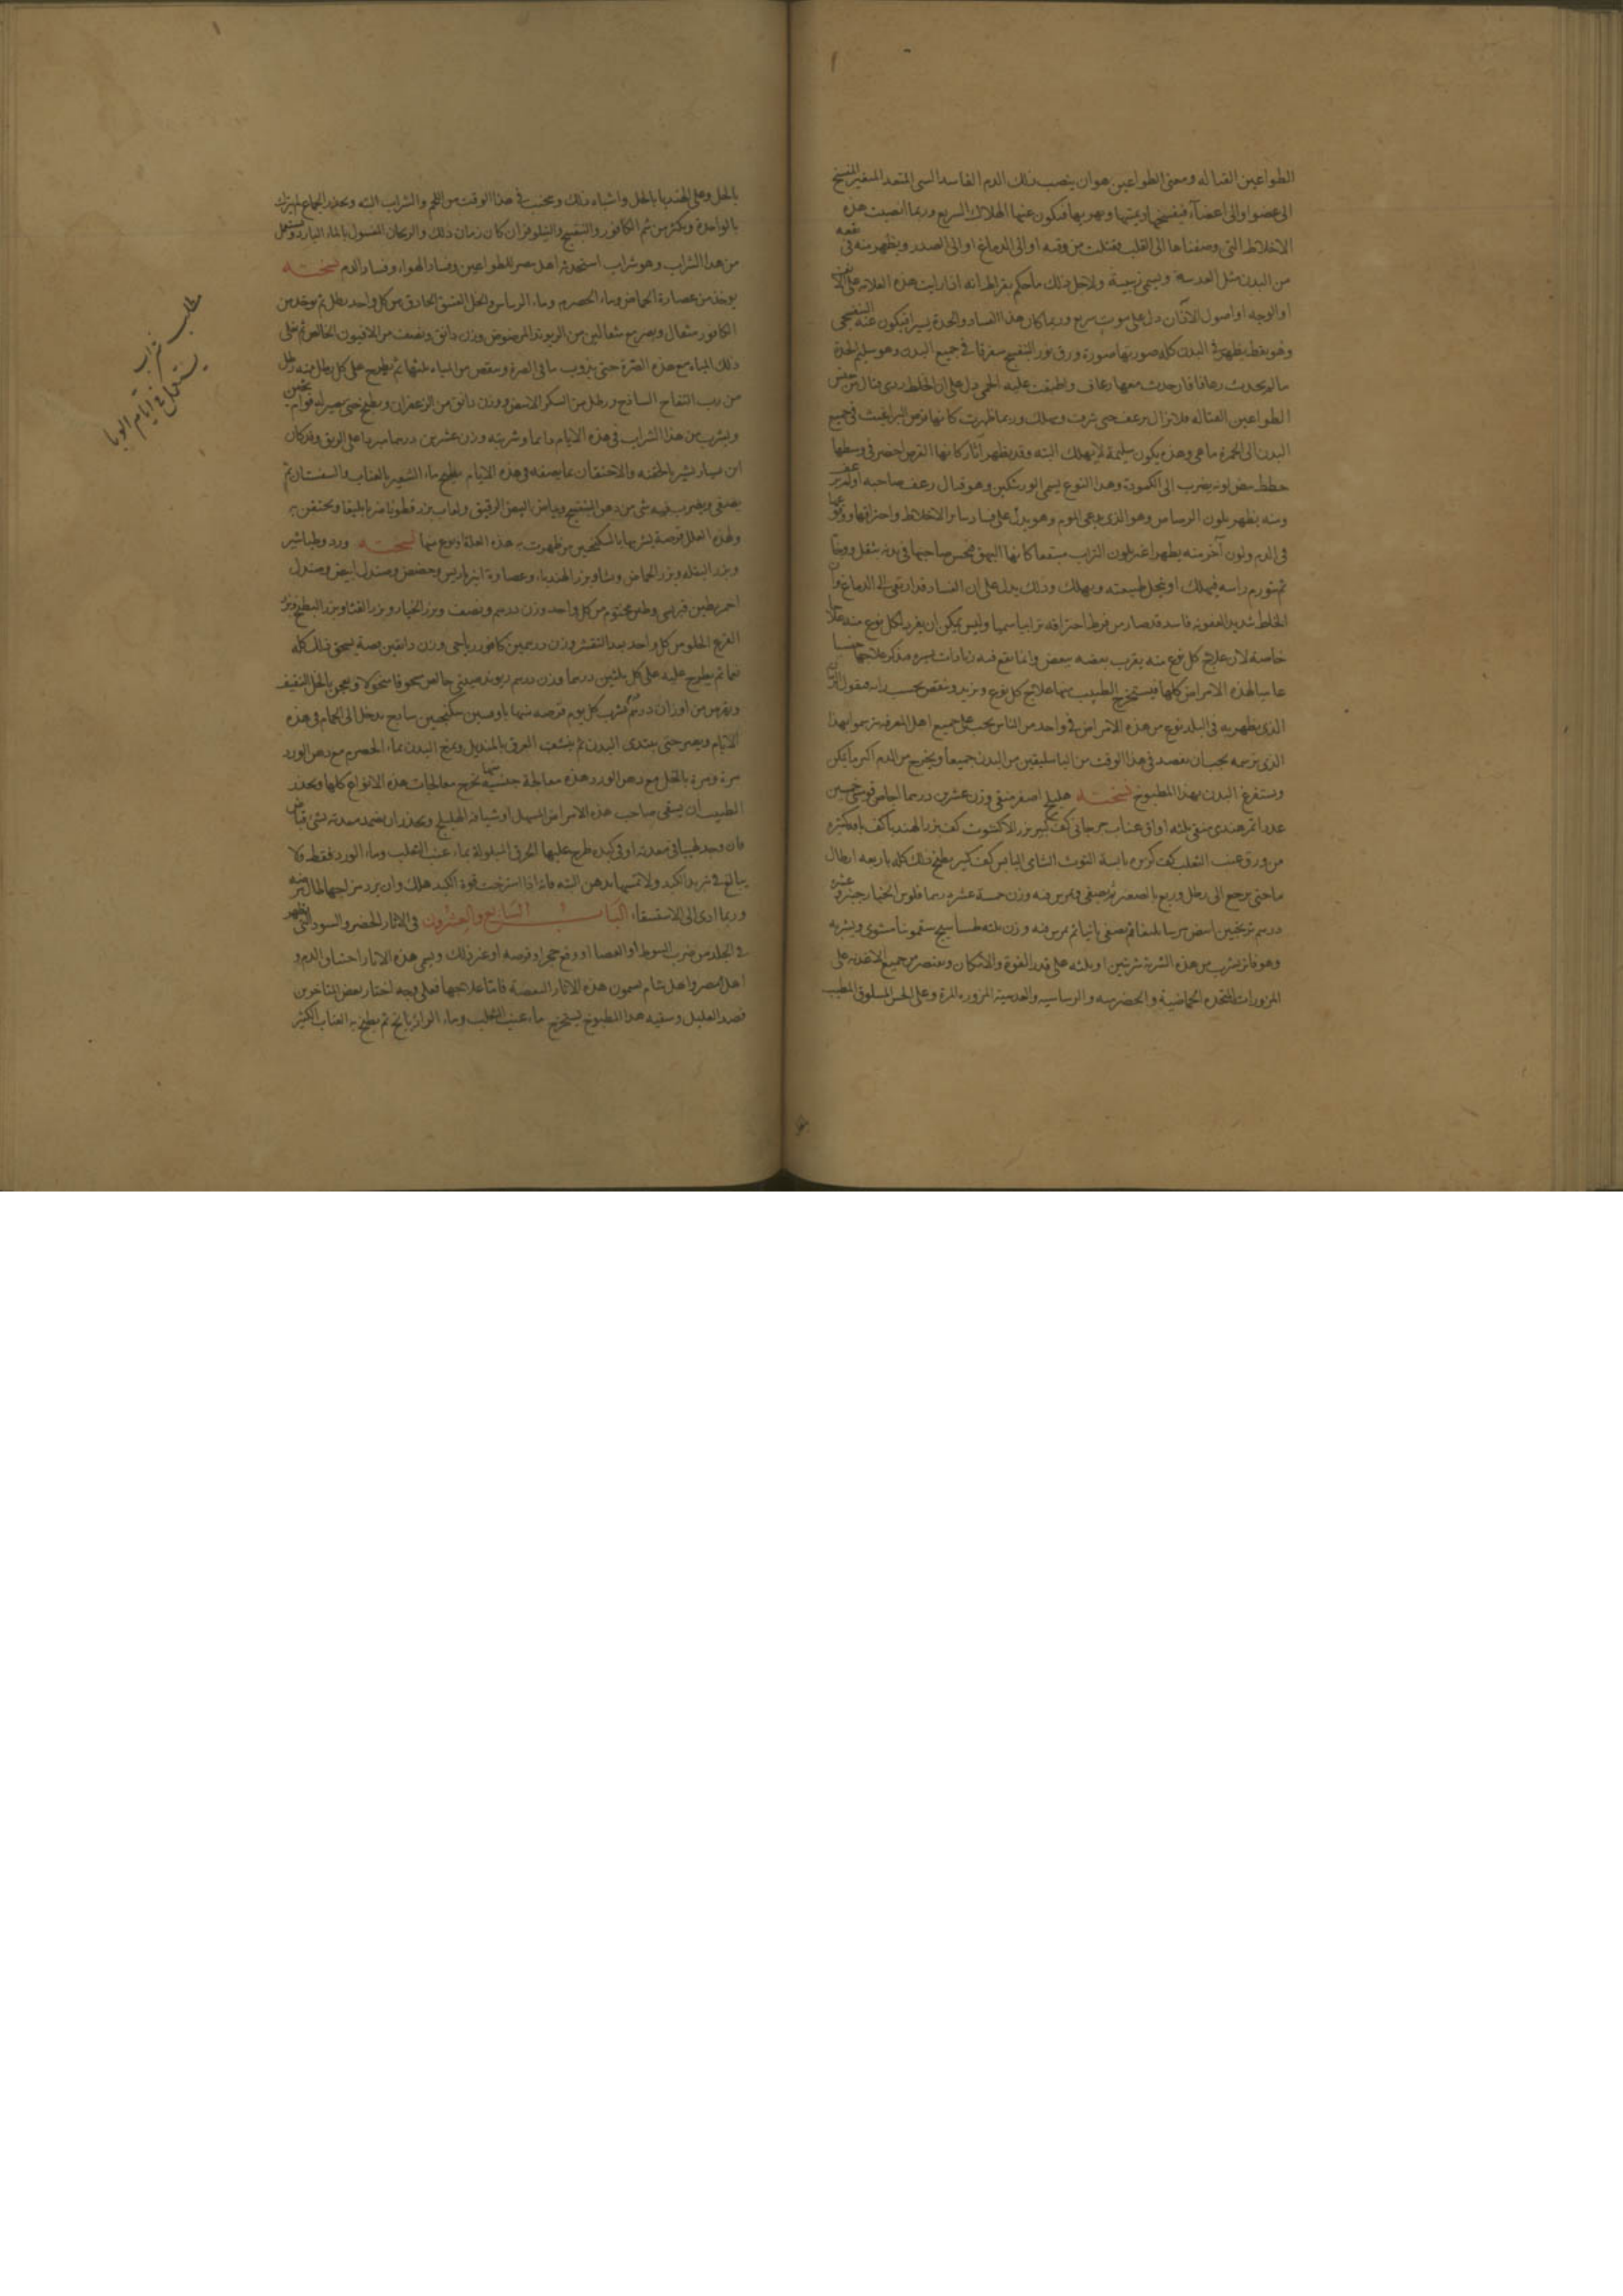 الطواعين القتاله ومعنى الطواعين هوان ينصب ذلك الدم الفاسد السمى المتغير
الى عضو او الى اعضاء فيفسدها ويميتها فيكون عنها الهلاك السريع وربما انصبت هذه
الاخلاط التى وصفناها الى القلب فقتلت من وقته او الى الدماغ او الى الصدر ويظهر منه فى
من البدن مثل العدسة ولاجل ذلك ماحكم بقراط انه اذا رايت هذه العلامة على
او الوجه او اصول الاذان دل على موت سريع وربما كان هذا الفساد والحدة يسيرا فيكون عنه
وهو نقط يظهر فى البدن كله صورتها صورة ورق نور البنفسج متفرقا فى جميع البدن وهو سليم الحدة
مالم يحدث رعافا فان حدث معها رعاف واطبقت عليه الحمى دل على ان الخلط ردى قتال من جنس
الطواعين القتاله فلا تزال يرعف حتى وتهلك وربما ظهرت كانها قرص البراغيث فى جميع
البدن الى الحمرة ماهى وهذه يكون سليمة لا تهلك البته وقد يظهر آثار كانها القرص اخضر فى وسطها
لونه يضرب الى الكمودة وهذا النوع يسمى وهو قتال رعف صاحبه اولم يرعف
ومنه يظهر بلون الرصاص وهو الذى وهو يدل على فساد سائر الاخلاط واحتراقها
فى الدم ولون آخر منه يظهر اغبر بلون التراب كانها البهق فيحس صاحبها فى بدنه بثقل
ثم تتورم راسه فيهلك او تنحل طبيعته ويهلك وذلك يدل على ان الفساد قد ارتقى الى الدماغ وان
الخلط شديد العفونه فاسد قد صار من فرط احتراقه ترابيا سميا وليس يمكن ان يفرد لكل نوع منه علاجا
خاصة لان علاج كل نوع منه يقرب بعضه ببعض وانما يقع فيه زيادات يسيره فنذكر علاجها
عاميا لهذه الامراض كلها فيستخرج الطبيب منها علاج كل نوع ويزيد وينقص بحسب
الذى يظهر به فى البلد نوع من هذه الامراض فى واحد من الناس يجب على جميع اهل المعرفه
يجب ان يفصد فى هذا الوقت من الباسليقين من البدن جميعا ويخرج من الدم اكثر مايمكن
ويستفرغ البدن بهذا المطبوخ نسخته هليلج اصفر منقى وزن عشرين درهما اجاص خمسين
عددا تمر هندى منقى ثلثه اواق عناب جرجانى كف كبير بزر الاكشوث كف بزر الهندبا كف
من ورق عنب الثعلب كف يابسة التوث الشامى اليابس كف كبير يطبخ ذلك كله باربعه ارطال
ماحتى يرجع الى رطل وربع ثم يصفى ويمرس فيه وزن خمسة عشر درهما فلوس الخيار
درهم ترنجبين ابيض ثم يصفى ثانيا ثم يمرس فيه وزن ثلثه سقمونيا مشوى ويشربه
وهو فاتر يشرب من هذه الشربة شربتين او ثلثه على قدر القوة والامكان ويقتصر من جميع الاغذيه على
المزورات المتخذه الحماضية والحصرميه والعدسية المزوره المرة وعلى الخس المسلوق المطيب
بالخل وعلى الهندبا بالخل واشباه ذلك ويجتنب فى هذا الوقت من اللحم والشراب البته ويحذر الجماع
بالواحدة ويكثر من شم الكافور والبنفسج والنيلوفر ان كان زمان ذلك والريحان المغسول بالماء البارد ويستعمل
من هذا الشراب وهو شراب استحدثه اهل مصر للطواعين وفساد الهواء وفساد الدم نسخته
يوخذ من عصارة الحماض وماء الحصرم وماء والخل العتيق الحاذق من كل واحد رطل ثم يوخذ من
الكافور مثقال ويصر مع مثقالين من الريوند المرضوض وزن دانق ونصف من الافيون الخالص ثم يغلى
ذلك المياه مع هذه الصرة حتى يذوب ما فى الصرة وينقص من المياه ثلثها ثم يطرح على كل رطل منه رطل
من رب التفاح الساذج ورطل من السكر الابيض ووزن دانق من الزعفران ويطبخ حتى يصير له قوام
ويشرب من هذا الشراب فى هذه الايام دايما وشربته وزن عشرين درهما على الريق وقد كان
ابن سيار يشير بالحقنه والاحتقان بما يصفه فى هذه الايام يطبخ ماء الشعير بالعناب والسفستان ثم
يصفى ويضرب فيه شى من دهن البنفسج وبياض البيض الرقيق ولعاب بزر قطونا ضربا بليغا ويحتقن به
ولهذه العلل قرصة يشربها بالسكنجبين من ظهرت به هذه العلة او نوع منها نسخته ورد وطباشير
وبزر البقله وبزر الحماض ونشا وبزر الهندباء وعصارة انبرباريس وصندل ابيض وصندل
احمر وطين قبرسى وطين مختوم من كل واحد وزن درهم ونصف وبزر الخيار وبزر القثا وبزر البطيخ وبزر
القرع الحلو من كل واحد بعد التقشر وزن درهمين كافور رياحى وزن دانقين يسحق ذلك كله
ثم يطرح عليه على كل ثلثين درهما وزن درهم ريوند صينى خالص مسحوقا منخولا ويعجن بالخل الثقيف
ويقرص من اوزان درهم يشرب كل يوم قرصه منها باوقيتين سكنجبين ساذج يدخل الى الحمام فى هذه
الايام ويصبر حتى يبتدى البدن ثم ينشف العرق بالمنديل ويمرخ البدن بماء الحصرم مع دهن الورد
مرة ومرة بالخل مع دهن الورد هذه معالجة يخرج منها معالجات هذه الانواع كلها ويحذر
الطبيب ان يسقى صاحب هذه الامراض المسهل او شيا فيه الهليلج ويحذر ان يضمد معدته بشى قباض
فان وجد لهيبا فى معدته او فى كبده طرح عليها الخرق المبلولة بماء عنب الثعلب وماء الورد فقط ولا
يبالغ فى تبريد الكبد ولا تمسها بدهن البته فانه اذا استرخت قوة الكبد هلك وان برد مزاجها طال
وربما ادى الى الاستسقاء الباب السابع والعشرون فى الاثار الخضر والسود التى تظهر
فى الجلد من ضرب السوط او العصا او وقع حجر او قرصه او غير ذلك ويسمى هذه الاثار
اهل مصر واهل شام يسمون هذه الاثار فاما علاجها فعلى وجه اختار بعض المتاخرين
فصد العليل وسقيه هذا المطبوخ يستخرج ماء عنب الثعلب وماء الرازيانج ثم يطبخ به العناب الكثير
مطلب شراب
يستعمل فى ايام الوبا